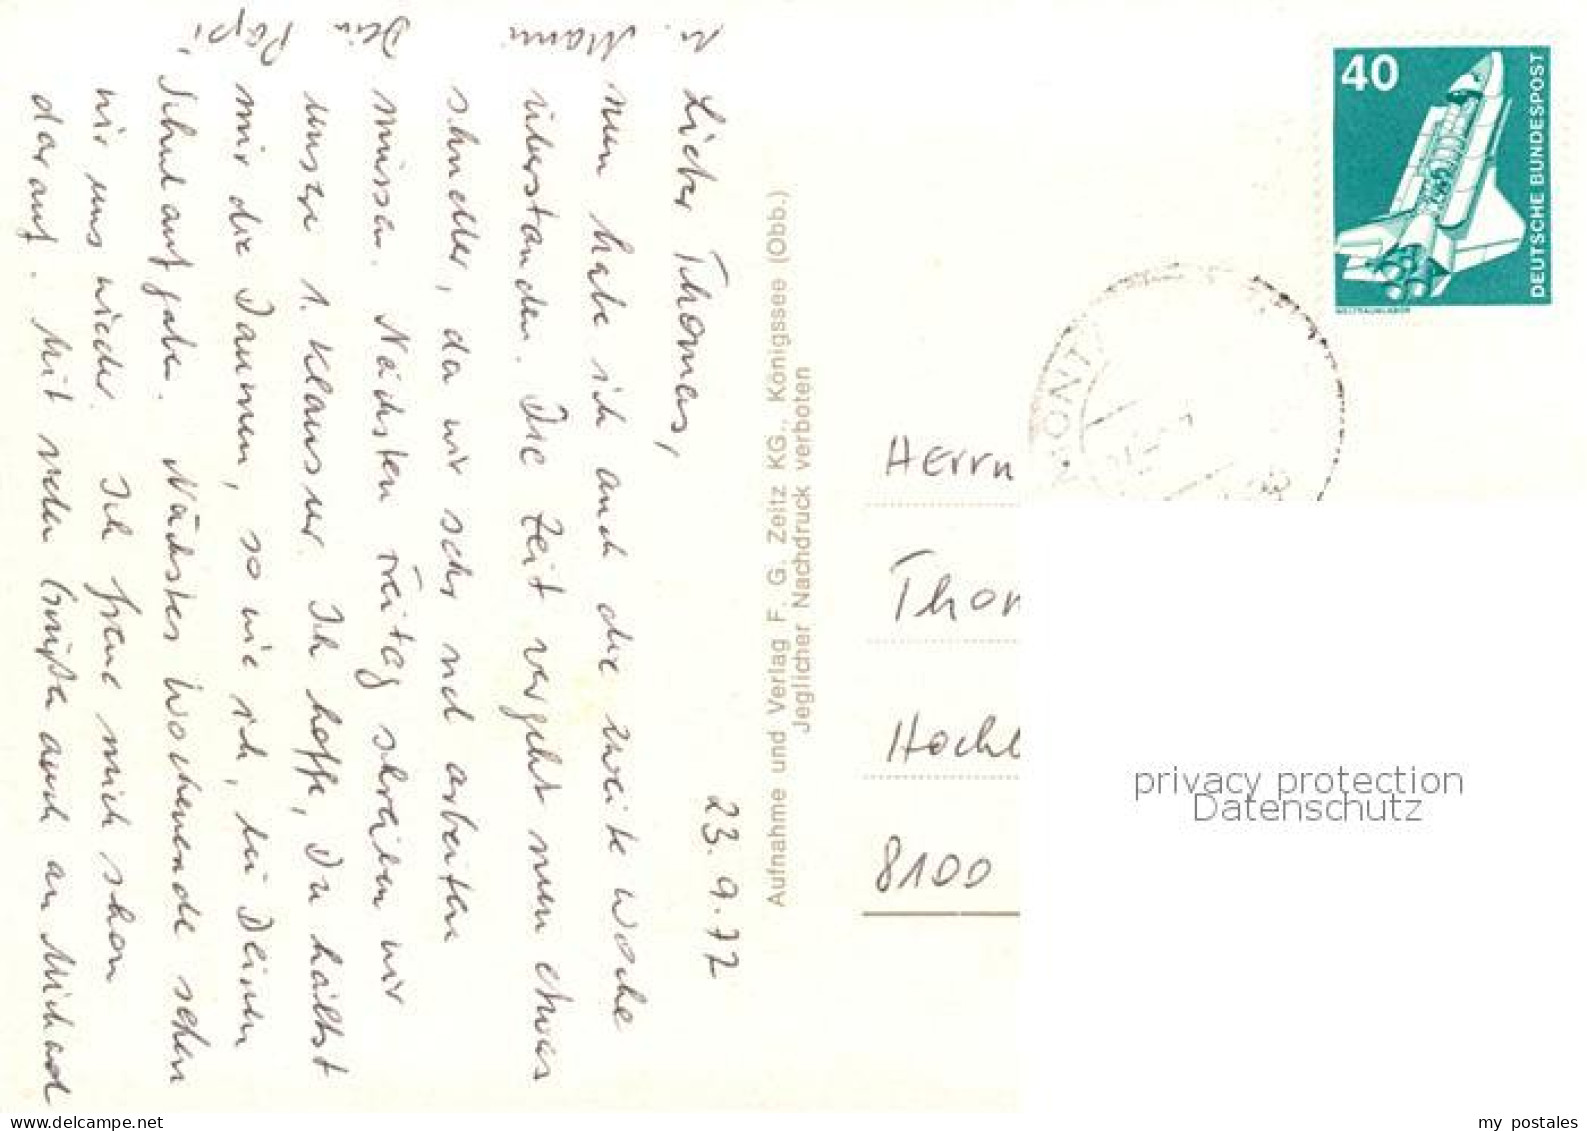 23.9.77
Lieber Thomas,
nun habe ich auch die zweite Woche
überstanden. Die Zeit vergeht nun etwas
schneller, da wir sehr viel arbeiten
müssen. Nächsten Freitag schreiben wir
unsere 1. Klausur. Ich hoffe, Du hältst
mir die Daumen, so wie ich, bei Deinen
Schulaufgaben. Nächstes Wochenende sehen
wir uns wieder. Ich freue mich schon
darauf. Mit vielen Grüßen auch an Michael
u. Mami
Dein
Papi
Aufnahme und Verlag F. G. Zeitz KG., Königssee (Obb.)
Jeglicher Nachdruck verboten
40
DEUTSCHE BUNDESPOST
WELTRAUMLABOR
MONT
Herrn
Thom
Hochl
8100
privacy protection
Datenschutz
hbv-ansichtskarten.com
my postales